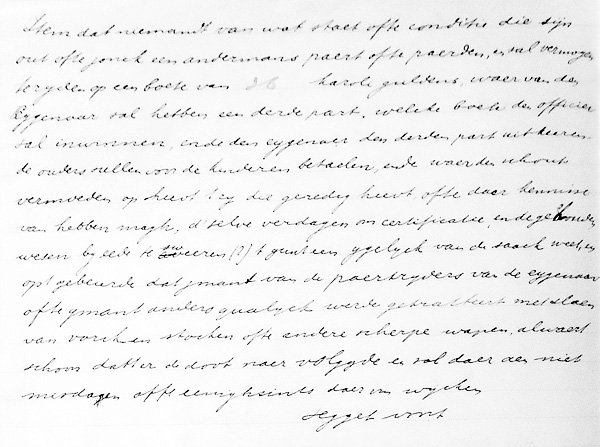 Item dat niemandt van wat staet ofte conditie die sijn
out ofte jonck een andermans paert ofte paerden, en sal vermogen
te ryden op een boete van 36 karoli guldens, waer van den
Eygenaer sal hebben een derde part, welcke boete den officier
sal inwinnen, ende den eygenaer den derden part uit keeren
de ouders sullen voor de kinderen betaelen, ende waer den schout
vermoeden op heeft hy die geredig heeft ofte daer kennisse
van hebben magh, d'selve verdagen om certificatie, ende gehouden
wesen by eede te sweeren (?) t gunt een ygelyck van de saack weet, en
opt gebeurde dat ymant van de paertryders van de eygenaer
ofte ymant anders qualyck werde getracteert met slaen
van vorcken stocken ofte andere scherpe wapen, alwaert
schoon datter de doot naer volgde en sal daer aen niet
misdagen ofte eenighsints daer om wycken
Segget vort